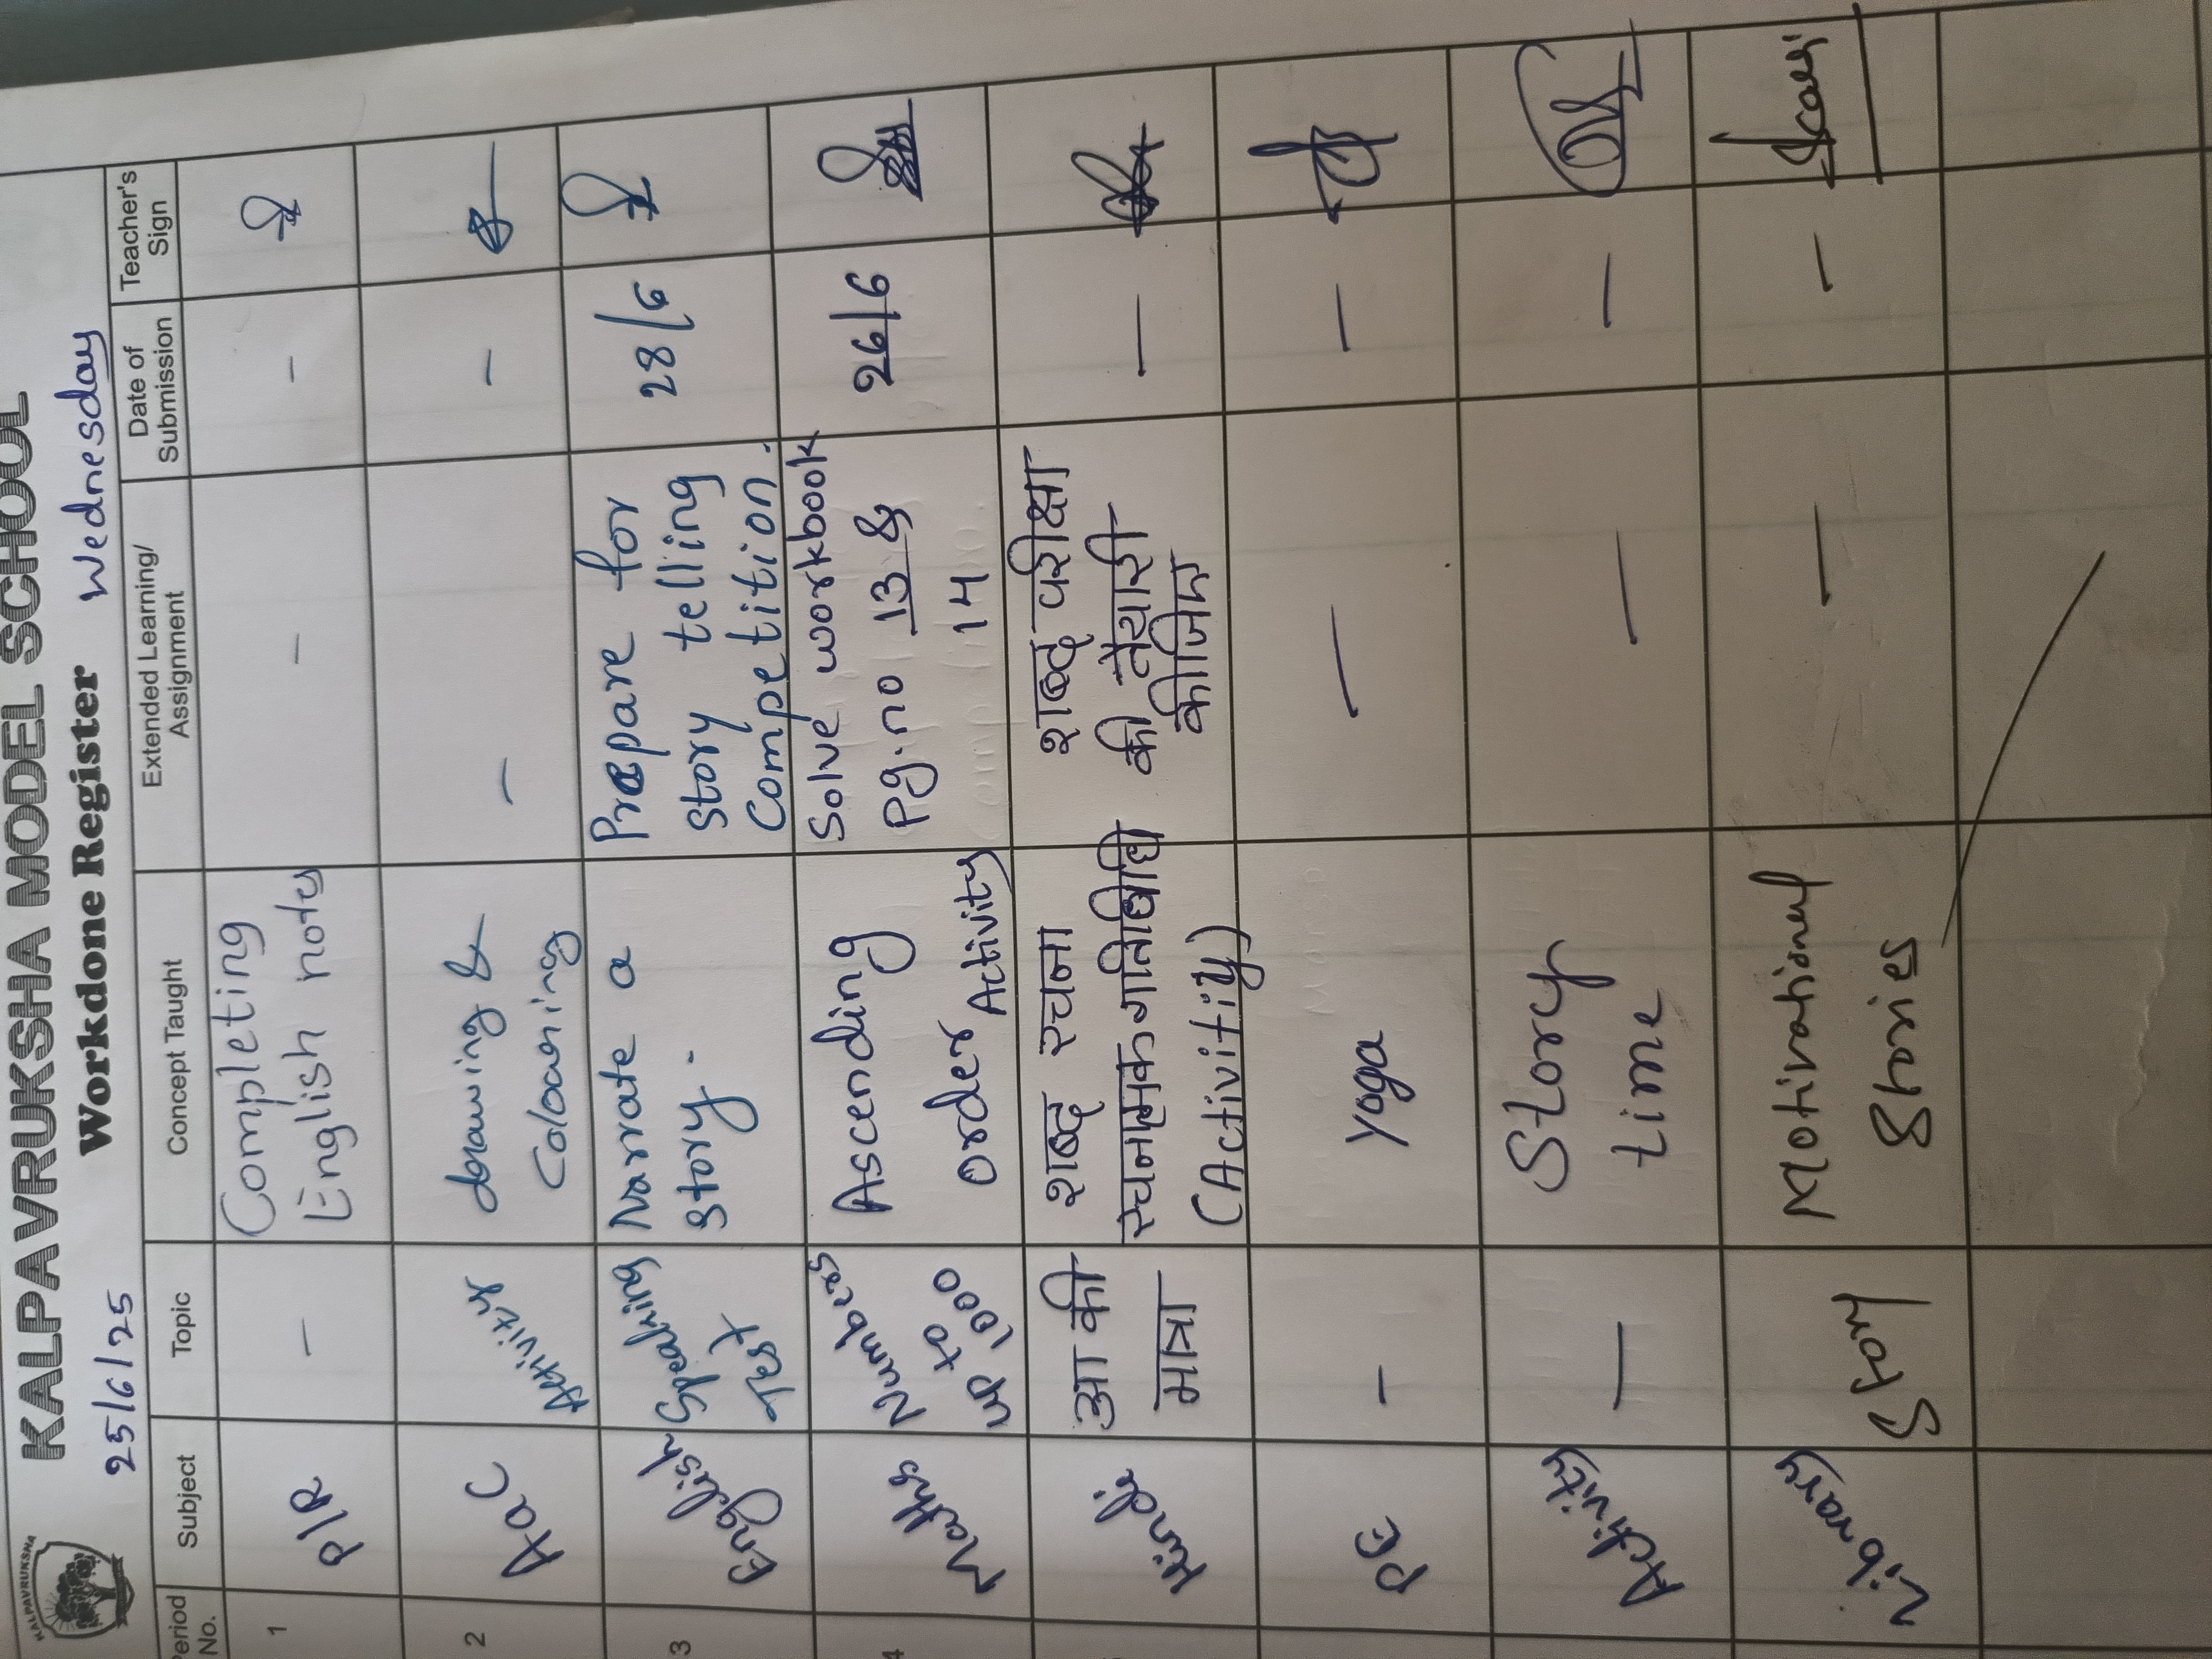 KALPAVRUKSHA
KALPAVRUKSHA MODEL SCHOOL
25/6/25 Workdone Register Wednesday
Period No. Subject Topic Concept Taught Extended Learning/ Assignment Date of Submission Teacher's Sign
1 P/R - Completing - -
English notes
2 A&C Activity drawing & - -
Colouring
3 English Speaking Narrate a Prepare for 28/6
Test story. story telling
Competition.
4 Maths Numbers Ascending Solve workbook 26/6
up to order Pg.no 13 &
1000 Activity 14
Hindi आ की शब्द रचना शब्द परीक्षा —
मात्रा रचनात्मक गतिविधि की तैयारी
(Activity) कीजिए
PE - Yoga — —
Activity — Story — —
time
Library Story Motivational — —
Stories